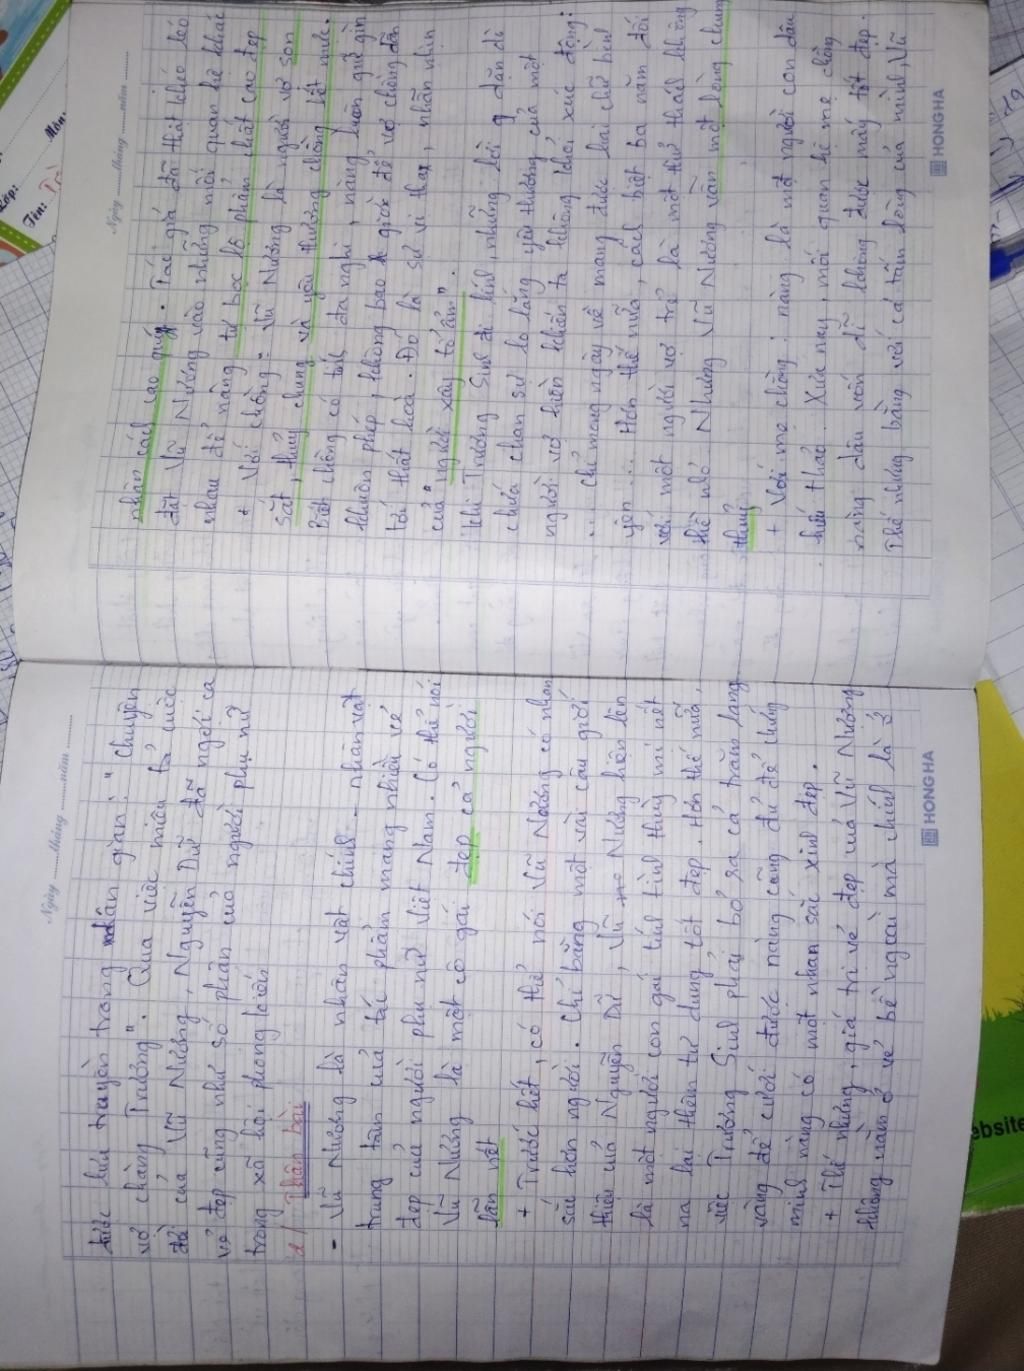 Ngày ........ tháng ........ năm ........
được lưu truyền trong nhân gian: "Chuyện
vợ chàng Trương". Qua việc miêu tả cuộc
đời của Vũ Nương, Nguyễn Dữ đã ngợi ca
vẻ đẹp cũng như số phận của người phụ nữ
trong xã hội phong kiến
2/ Thân bài
- Vũ Nương là nhân vật chính - nhân vật
trung tâm của tác phẩm mang nhiều vẻ
đẹp của người phụ nữ Việt Nam. Có thể nói
Vũ Nương là một cô gái đẹp cả người
lẫn nết
+ Trước hết, có thể nói Vũ Nương có nhan
sắc hơn người. Chỉ bằng một vài câu giới
thiệu của Nguyễn Dữ, Vũ Nương hiện lên
là một người con gái tính tình thùy mị nết
na lại thêm tư dung tốt đẹp. Hơn thế nữa,
việc Trương Sinh phải bỏ ra cả trăm lạng
vàng để cưới được nàng cũng đủ để chứng
minh nàng có một nhan sắc xinh đẹp.
+ Thế nhưng, giá trị vẻ đẹp của Vũ Nương
không nằm ở vẻ bề ngoài mà chính là ở
HONG HA
Ngày ........ tháng ........ năm ........
nhân cách cao quý. Tác giả đã thật khéo léo
đặt Vũ Nương vào những mối quan hệ khác
nhau để nàng tự bộc lộ phẩm chất cao đẹp
+ Với chồng: Vũ Nương là người vợ son
sắt, thuỷ chung và yêu thương chồng hết mực.
Biết chồng có tính đa nghi, nàng luôn giữ gìn
khuôn phép, không bao giờ để vợ chồng dẫn
tới thất hoà. Đó là sự vị tha, nhẫn nhịn
của "người xây tổ ấm".
Khi Trương Sinh đi lính, những lời dặn dò
chứa chan sự lo lắng yêu thương của một
người vợ hiền khiến ta không khỏi xúc động:
.... chỉ mong ngày về mang được hai chữ bình
yên.... Hơn thế nữa, cách biệt ba năm đối
với một người vợ trẻ là một thử thách không
hề nhỏ. Nhưng Vũ Nương vẫn một lòng chung
thuỷ
+ Với mẹ chồng: nàng là một người con dâu
hiếu thảo. Xưa nay, mối quan hệ mẹ chồng
nàng dâu vốn dĩ không được mấy tốt đẹp.
Thế nhưng bằng với cả tấm lòng của mình, Vũ
HONG HA
Lớp:
Tên:
Môn:
ebsite